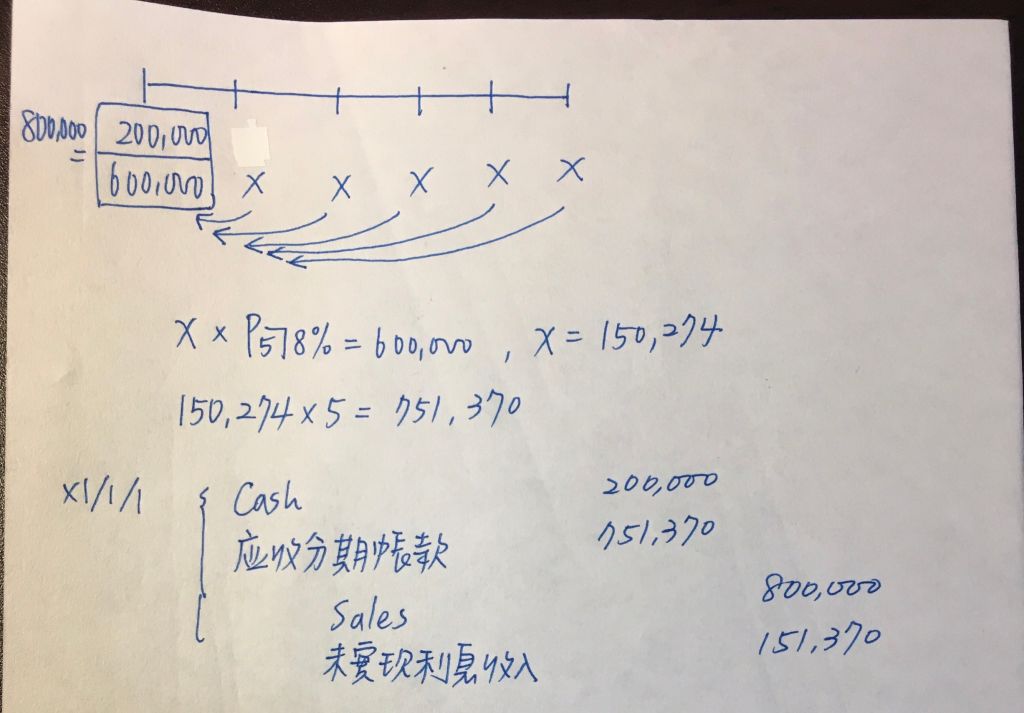 800,000 = 200,000
600,000 X X X X X
X × P5┐8% = 600,000 , X = 150,274
150,274 × 5 = 751,370
X1/1/1 Cash 200,000
应收分期帳款 751,370
Sales 800,000
未實现利息收入 151,370